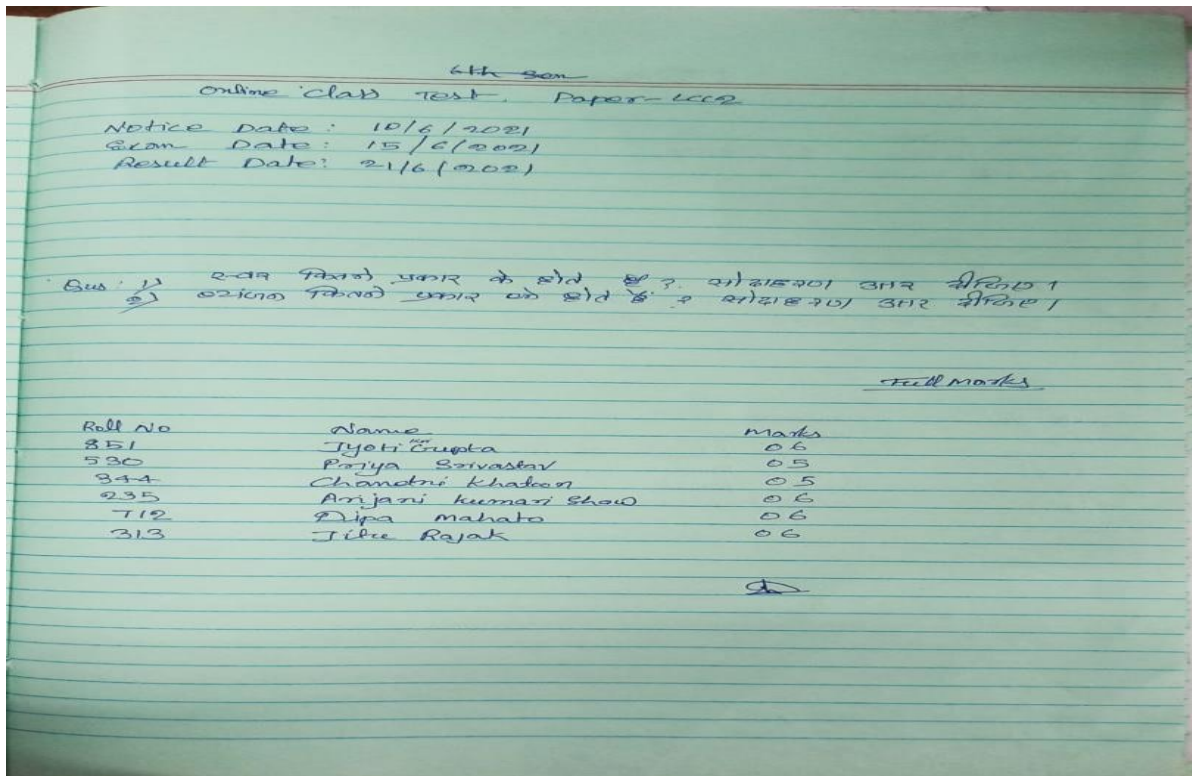 6th Sem
Online Class Test. Paper-LCC2
Notice Date : 10/6/2021
Exam Date : 15/6/2021
Result Date: 21/6/2021
Qus : 1) स्वर कितने प्रकार के होते हैं ? सोदाहरण उत्तर दीजिए।
2) व्यंजन कितने प्रकार के होते हैं ? सोदाहरण उत्तर दीजिए।
Full Marks
Roll No Name Marks
851 Jyoti Gupta 06
530 Priya Srivastav 05
344 Chandni Khatoon 05
235 Anjani Kumari Show 06
712 Dipa Mahato 06
313 Rajak 06